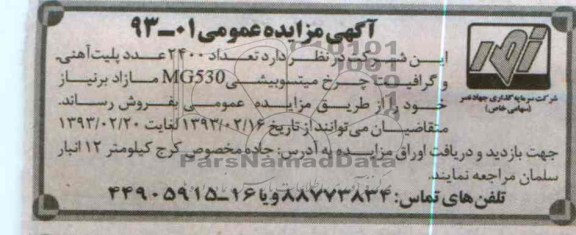 آگهی مزایده عمومی ۰۱-۹۳
این شرکت در نظر دارد تعداد ۲۴۰۰ عدد پلیت آهنی
و گرافیت چرخ میتسوبیشی MG530 مازاد بر نیاز
خود را از طریق مزایده عمومی بفروش رساند.
متقاضیان می‌توانند از تاریخ ۱۳۹۳/۰۲/۱۶ لغایت ۱۳۹۳/۰۲/۲۰
جهت بازدید و دریافت اوراق مزایده به آدرس: جاده مخصوص کرج کیلومتر ۱۲ انبار
سلمان مراجعه نمایند.
تلفن های تماس: ۸۸۷۷۳۸۳۴ و یا ۱۶-۴۴۹۰۵۹۱۵
شرکت سرمایه گذاری جهاد نصر
(سهامی خاص)
ParsNamadData